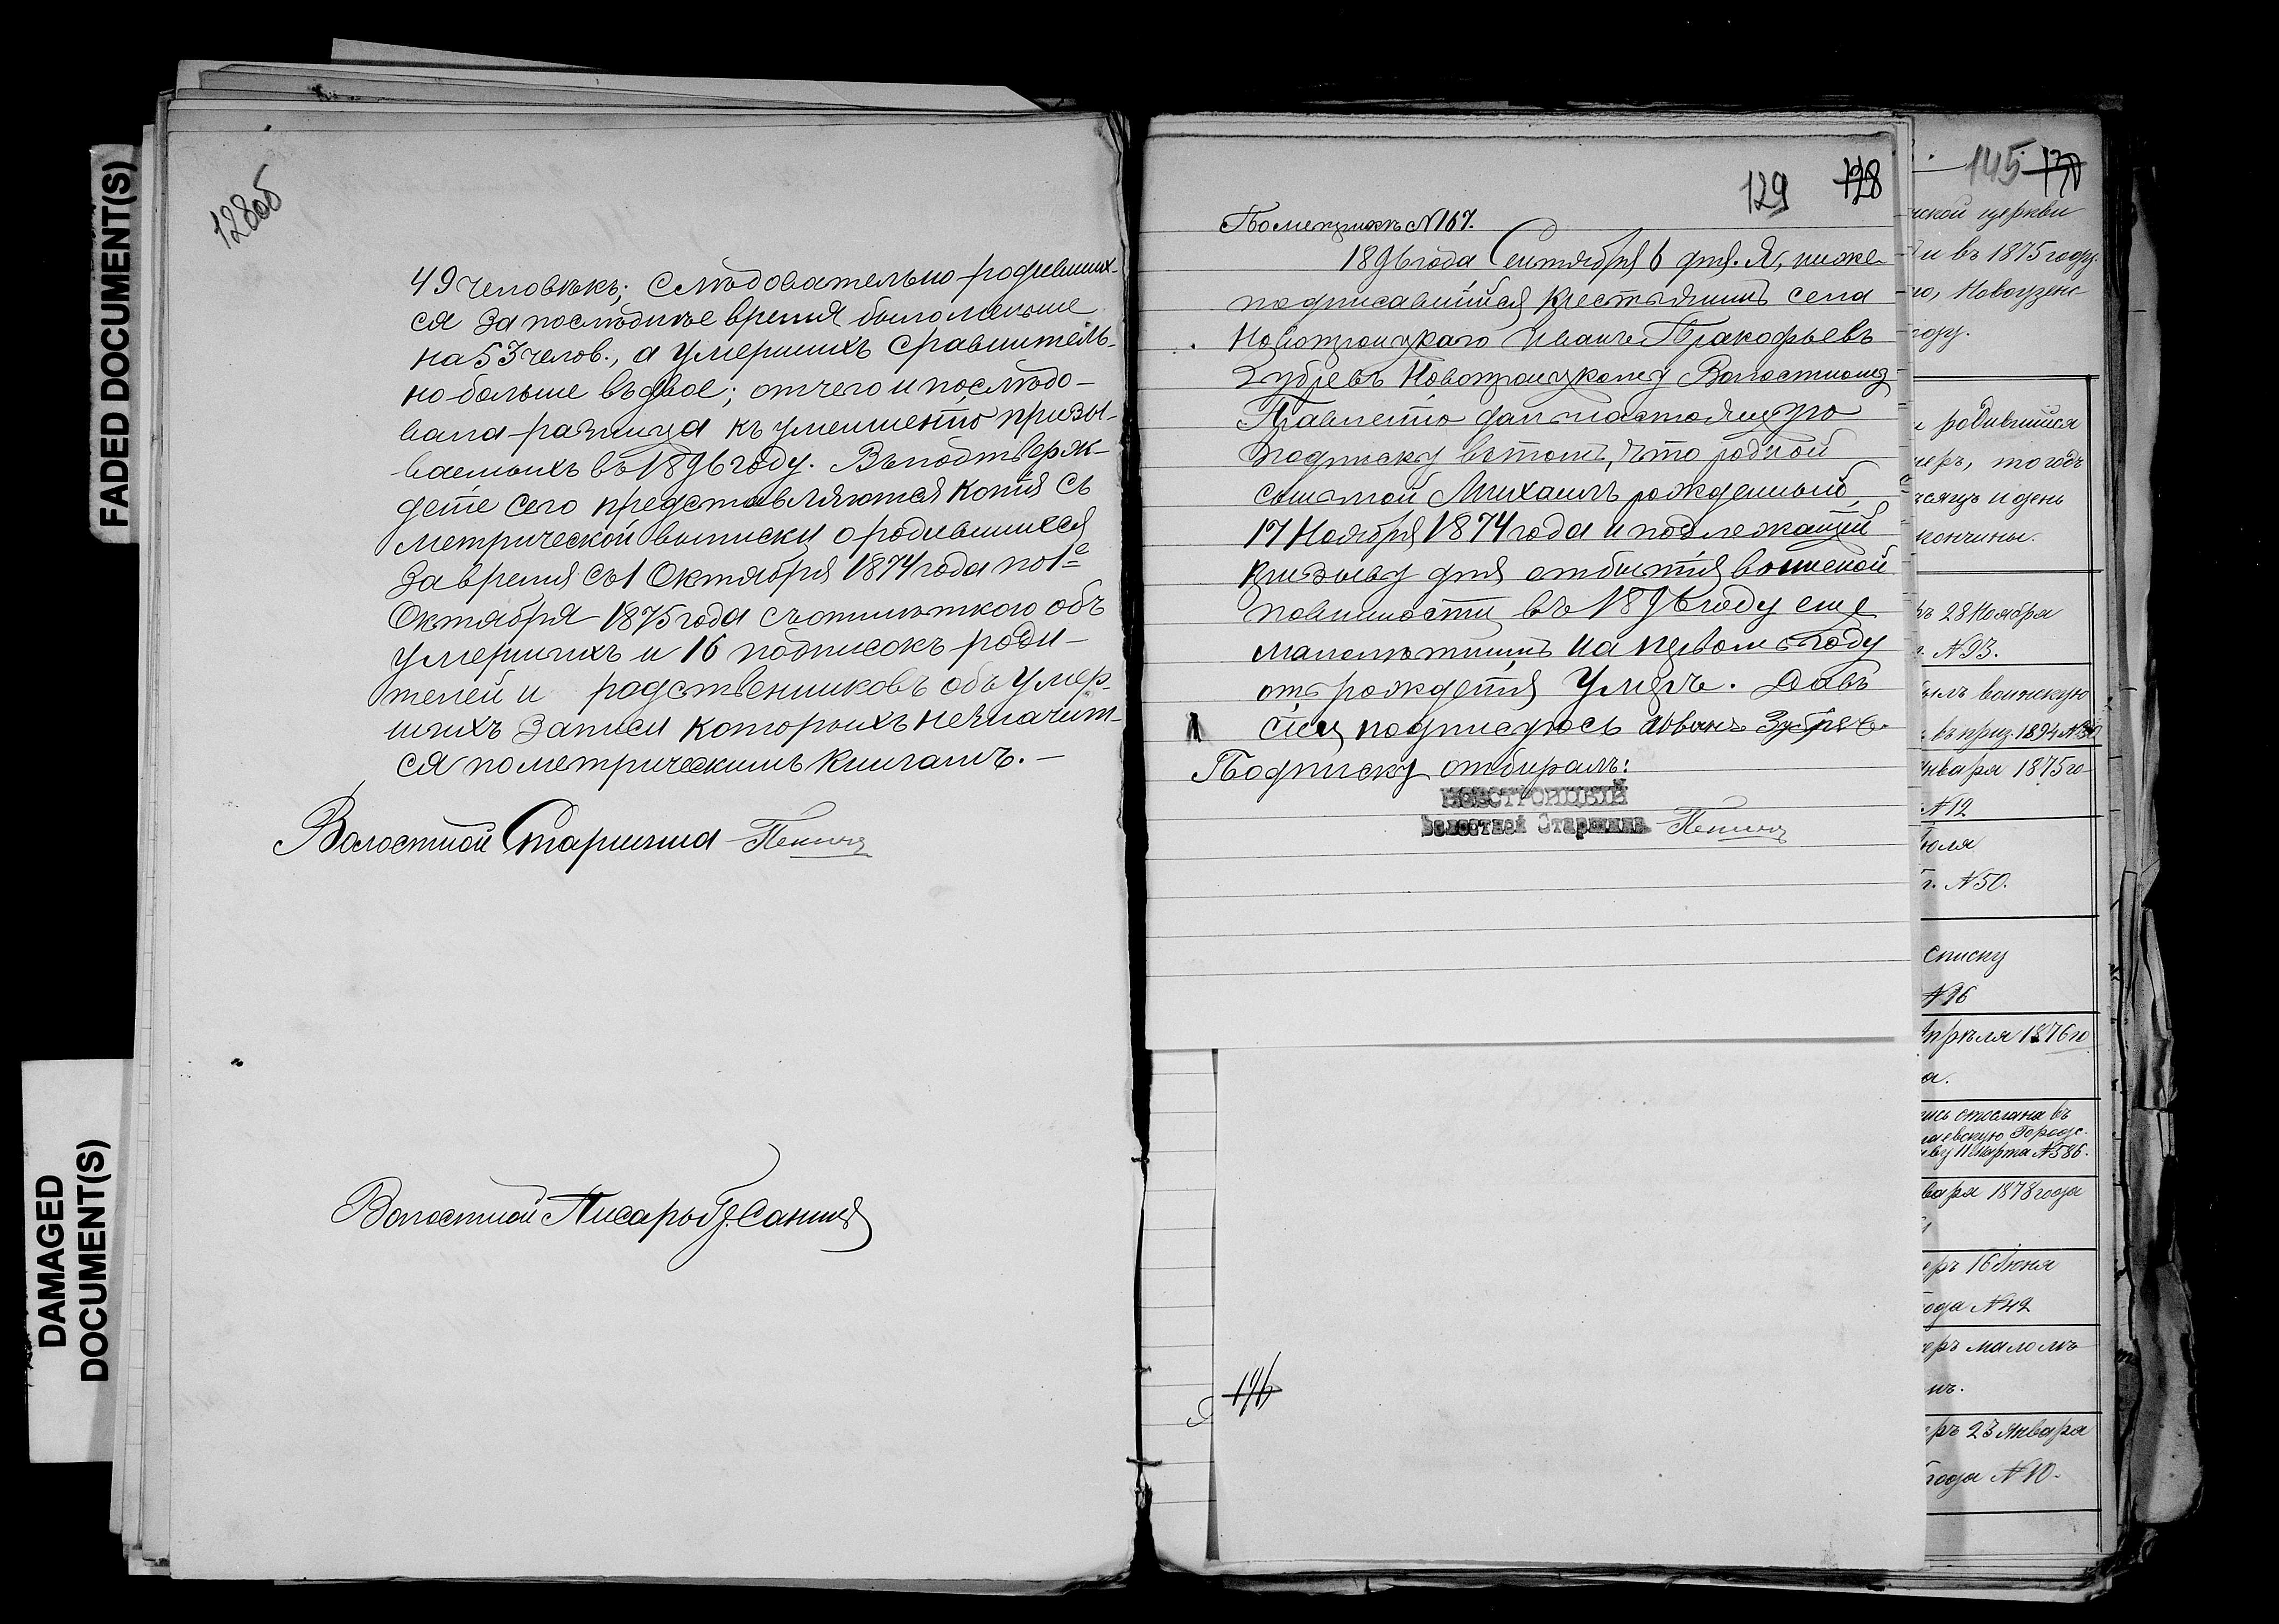 FADED DOCUMENT(S)
DAMAGED
DOCUMENT(S)
128об
49 человѣкъ; Слѣдовательно родивших-
ся за послѣднее время было меньше
на 53 челов., а умершихъ сравнитель-
но больше вдвое; отчего и послѣдо-
вала разница къ уменшенію призы-
ваемыхъ въ 1896 году. Въ подтверж-
деніе сего представляются копія съ
метрической выписки о родившихся
за время съ 1 Октября 1874 года по 1е
Октября 1875 года съ отмѣткою объ
умершихъ и 16 подписокъ роди-
телей и родственниковъ объ умер-
шихъ записи которыхъ не значит-
ся по метрическимъ книгамъ. —
Волостной Старшина
Волостной Писарь
129 128
№ 167.
1896 года Сентября 6 дня. Я, ниже-
подписавшійся крестьянинъ села
Новотроицкаго Иванъ Прокофьевъ
Зубревъ Новотроицкому Волостному
Правленію далъ настоящую
подписку въ томъ, что родной
сынъ мой Михаилъ рожденный
17 Ноября 1874 года и подлежащій
призыву для отбытія воинской
повинности въ 1896 году еще
малолѣтнимъ на первомъ году
отъ рожденія умеръ. Въ
подписуюсь Иванъ Зубревъ.
Подписку отбиралъ:
НОВОТРОИЦКІЙ
Волостной Старшина
196
145 130
ской церкви
и въ 1875 году.
го, Новоузенс
году.
родившійся
меръ, то годъ
мѣсяцъ и день
кончины.
28 Ноября
№ 93.
воинскую
въ приз. 1894 №
Января 1875 го
№ 12
юля
г. № 50.
списку
№ 26
Апрѣля 1876 го
а.
отослана въ
Городс.
11 Марта № 586.
варя 1878 года
еръ 16 Іюня
года № 42
еръ малолѣ
мъ.
еръ 23 Января
года № 10.